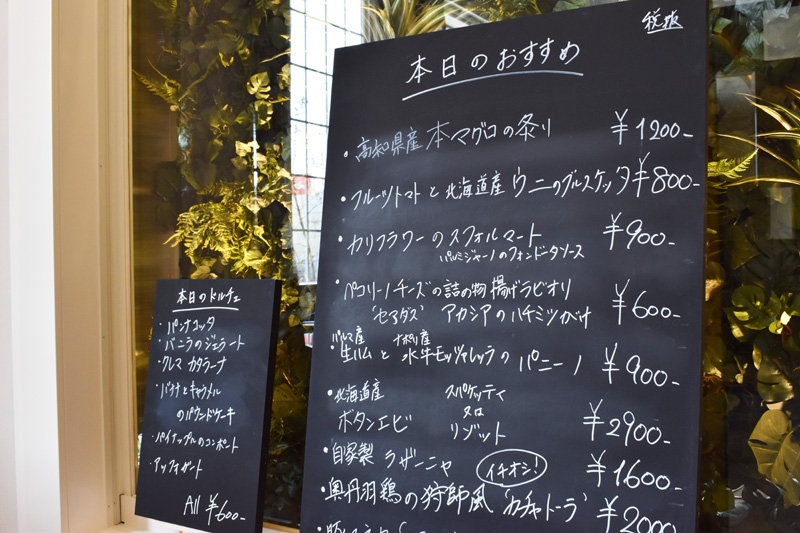 税抜
本日のおすすめ
・高知県産 本マグロの炙り ¥1200-
・フルーツトマトと北海道産ウニのブルスケッタ ¥800-
・カリフラワーのスフォルマート ¥900-
パルミジャーノのフォンドゥータソース
・ペコリーノチーズの詰め物 揚げラビオリ
'セアダス' アカシアのハチミツがけ ¥600-
パルマ産 ナポリ産
・生ハムと水牛モッツァレッラのパニーノ ¥900-
・北海道産 スパゲッティ
又は
ボタンエビ リゾット ¥2900-
・自家製 ラザーニャ イチオシ! ¥1600-
・奥丹羽鶏の狩師風 'カチャトーラ' ¥2000
本日のドルチェ
・パンナコッタ
・バニラのジェラート
・クレマ カタラーナ
・バナナとキャラメル
のパウンドケーキ
・パイナップルのコンポート
・アッフォガート
All ¥600-